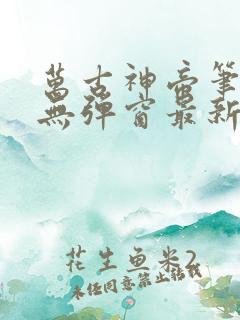 萬古神帝筆
無彈窗最新
花生鱼米2
未经同意禁止转载